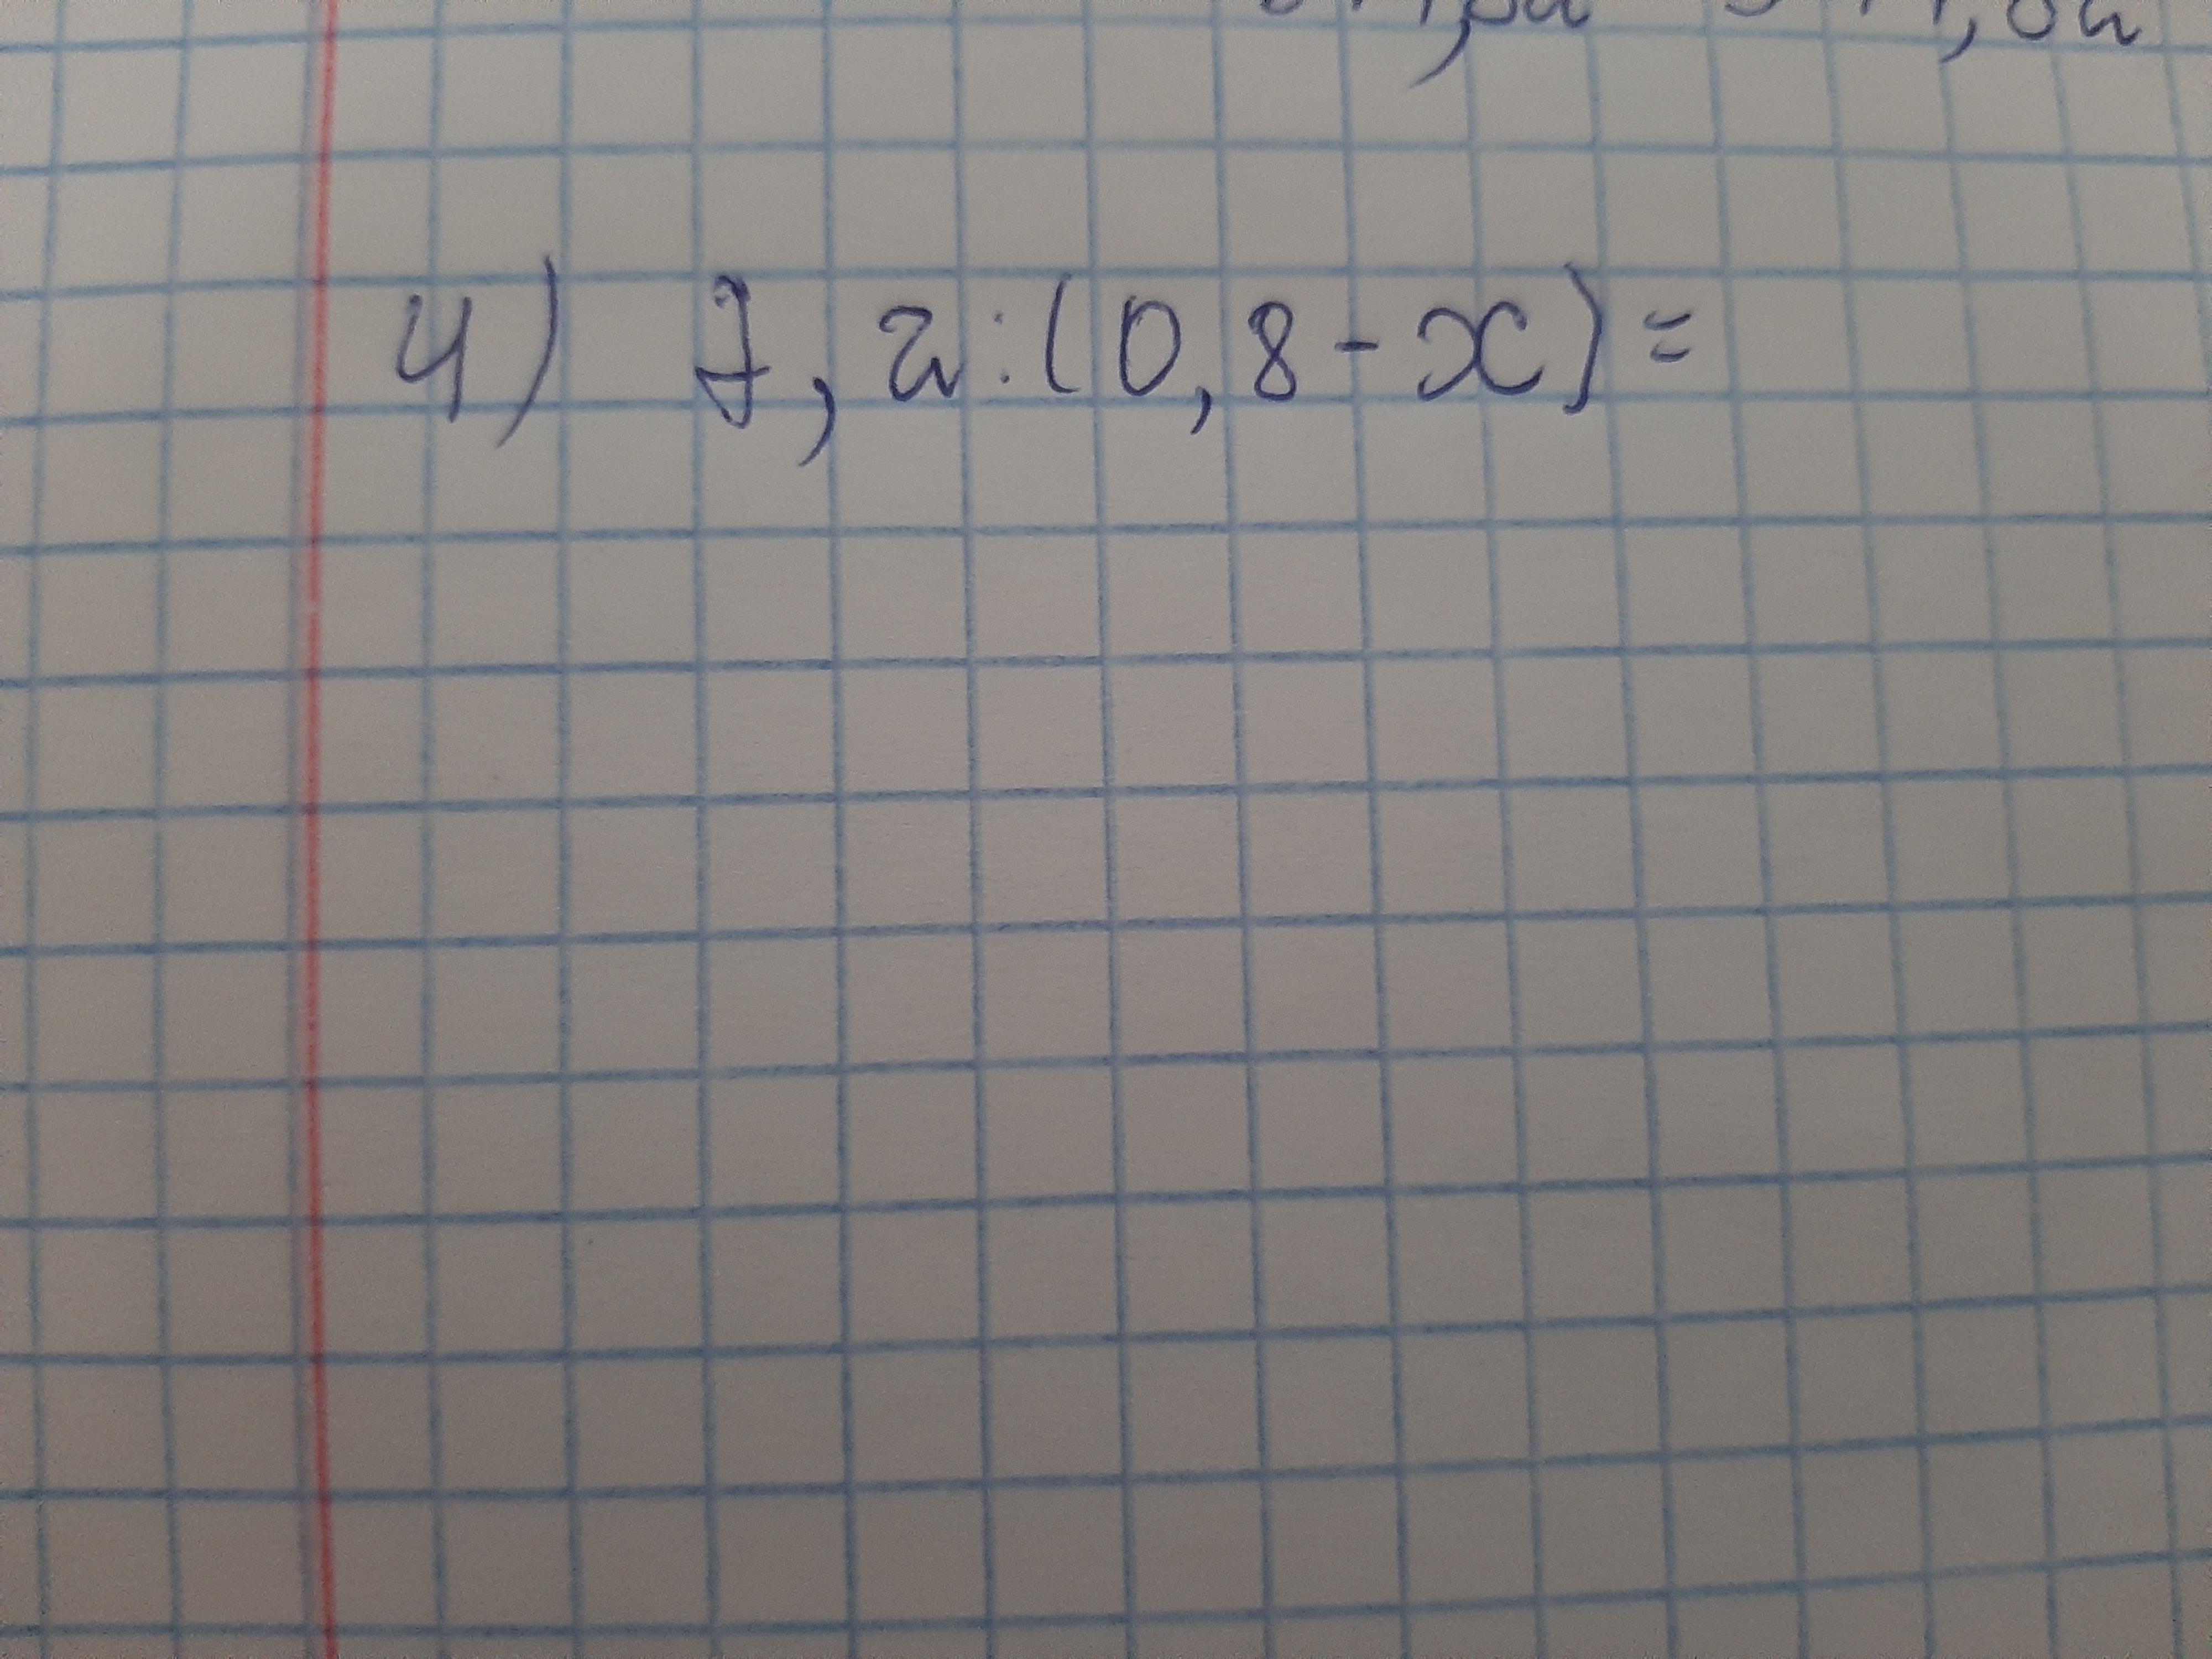 4) 7,2:(0,8-x)=